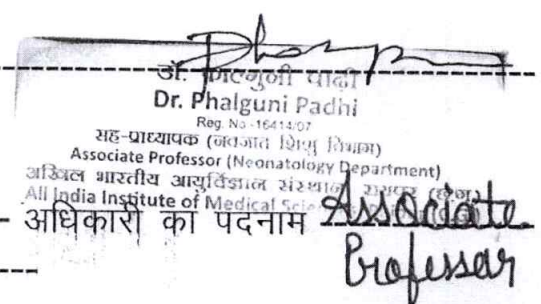 डॉ. फाल्गुनी पाढ़ी
Dr. Phalguni Padhi
Reg. No -16414/07
सह-प्राध्यापक (नवजात शिशु विभाग)
Associate Professor (Neonatology Department)
अखिल भारतीय आयुर्विज्ञान संस्थान रायपुर (छ.ग.)
All India Institute of Medical
अधिकारी का पदनाम Associate
Professor